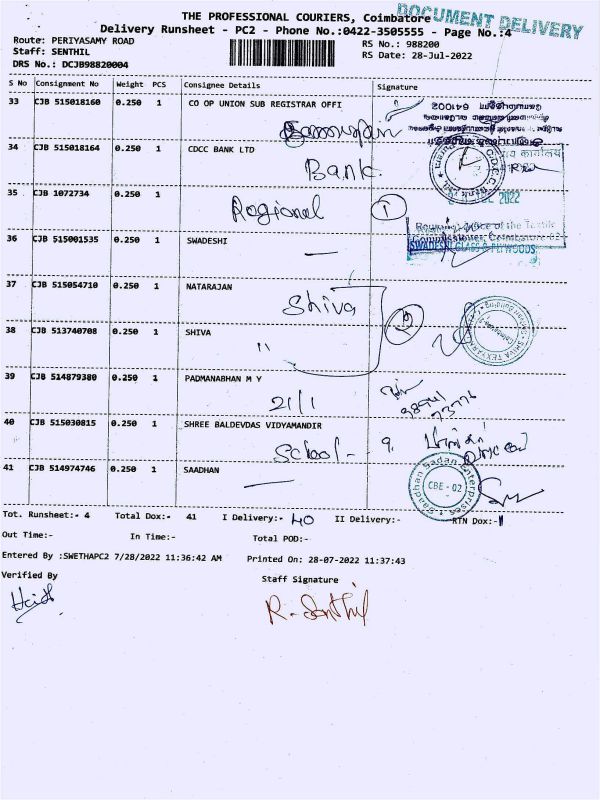 THE PROFESSIONAL COURIERS, Coimbatore
DOCUMENT DELIVERY
Delivery Runsheet - PC2 - Phone No.:0422-3505555 - Page No.:4
Route: PERIYASAMY ROAD
RS No.: 988200
Staff: SENTHIL
RS Date: 28-Jul-2022
DRS No.: DCJB98820004
S No Consignment No Weight PCS Consignee Details Signature
33 CJB 515018160 0.250 1 CO OP UNION SUB REGISTRAR OFFI
641002
34 CJB 515018164 0.250 1 CDCC BANK LTD
Bank
35 CJB 1072734 0.250 1
Regional 1
2022
Regional Office of the Textile
Commissioner, Coimbatore-02
36 CJB 515001535 0.250 1 SWADESHI
SWADESHI GLASS & PLYWOODS
37 CJB 515054710 0.250 1 NATARAJAN
Shiva 2
38 CJB 513740708 0.250 1 SHIVA
"
39 CJB 514879380 0.250 1 PADMANABHAN M Y
21/1
40 CJB 515030815 0.250 1 SHREE BALDEVDAS VIDYAMANDIR
School - 9.
41 CJB 514974746 0.250 1 SAADHAN
Saadhan Sadan Enterprises
CBE - 02
Tot. Runsheet:- 4 Total Dox:- 41 I Delivery:- 40 II Delivery:- RTN Dox:- 1
Out Time:- In Time:- Total POD:-
Entered By :SWETHAPC2 7/28/2022 11:36:42 AM Printed On: 28-07-2022 11:37:43
Verified By Staff Signature
R. Senthil